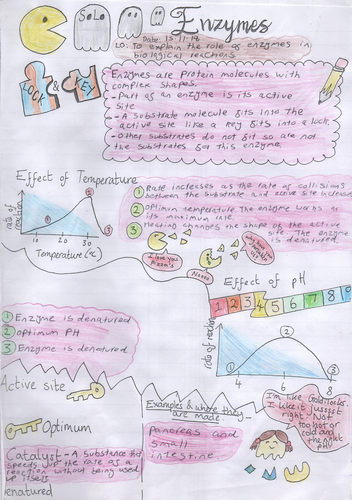 Solo
Enzymes
Date: 15.11.17
LO: To explain the role of enzymes in
biological reactions
LOCK & KEY
Enzymes are Protein molecules with
complex shapes.
- Part of an enzyme is its active
site
- A substrate molecule fits into the
active site like a key fits into a lock
- Other substrates do not fit so are not
the substrates for this enzyme
Effect of Temperature
rate of reaction
1
2
3
10 20 30
Temperature (°c)
1 Rate increases as the rate of collisions
between the substrate and active site increase
2 Optimum temperature The enzyme works at
its maximum rate.
3 Heating changes the shape of the active
site. The enzyme is denatured
I love you
Pizza's
Noooo
Effect of pH
1 2 3 4 5 6 7 8 9
rate of reaction
1
2
3
4 6 8
1 Enzyme is denatured
2 Optimum PH
3 Enzyme is denatured
Active site
Optimum
Catalyst - A substance that
speeds up the rate of a
reaction without being used
up itself
Denatured
Examples & where they
are made
pancreas and
small
intestine
I'm like Goldilocks
I like it jussst
right. Not
too hot or
cold and the
right pH